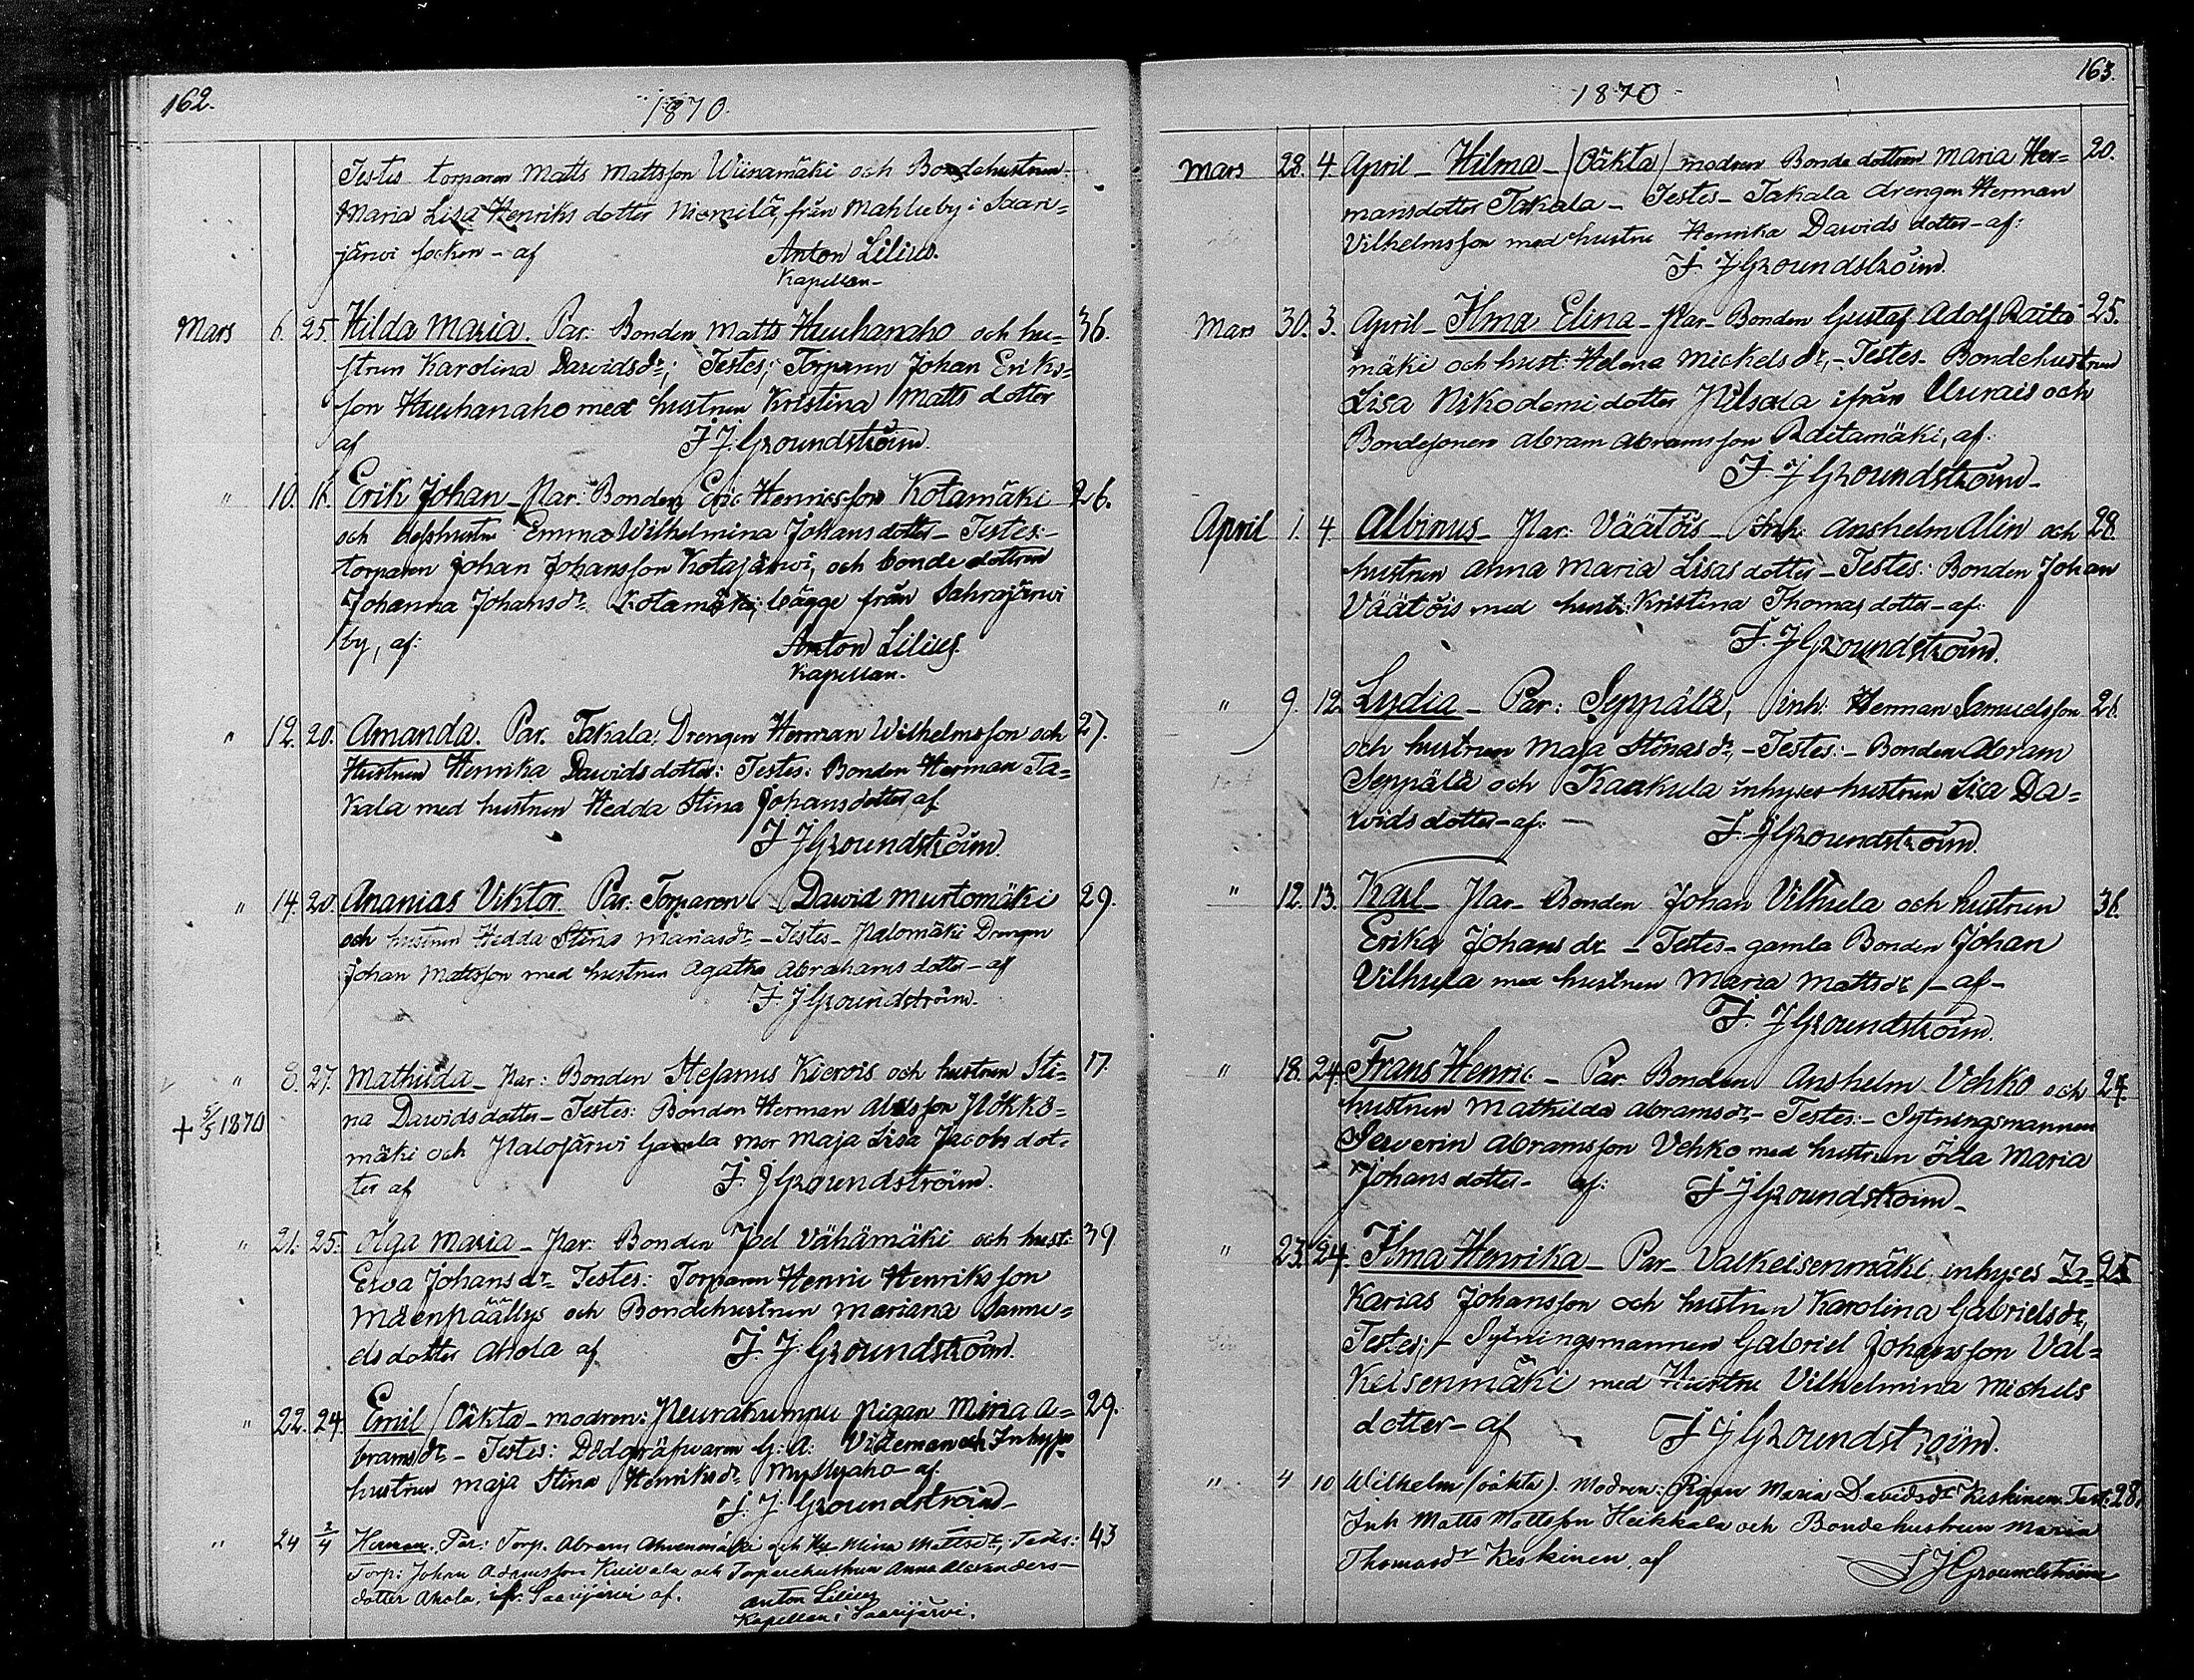 162.
1870.
Testes torparen Matts Mattsson Wiinamäki och Bondehustrun
Maria Lisa Henriks dotter Niemilä, från Mahlu by i Saari=
järwi socken - af Anton Lilius.
Kapellan -
Mars 6. 25. Hilda Maria. Par: Bonden Matts Huuhanaho och hu= 36.
strun Karolina Davidsdr; Testes; Torparen Johan Eriks=
son Huuhanaho med hustrun Kristina Matts dotter
af F. J. Groundström.
" 10. 11. Erik Johan - Par: Bonden Eric Henricsson Kotamäki 26.
och dess hustru Emma Wilhelmina Johans dotter - Testes: -
torparen Johan Johansson Kotajärwi, och bonde dottren
Johanna Johansdr Kotamäki; bägge från Sahrajärwi
by, af: Anton Lilius
Kapellan.
" 12. 20. Amanda. Par. Takala; Drengen Herman Wilhelmsson och 27.
Hustrun Henrika Davids dotter: Testes: Bonden Herman Ta=
kala med hustrun Hedda Stina Johans dotter af
F. J Groundström.
" 14. 20. Ananias Viktor. Par: Torparen David Murtomäki 29.
och hustrun Hedda Stina Mariasdr - Testes - Palomäki Drengen
Johan Mattsson med hustrun Agatha Abrahams dotter - af
F. J Groundström -
" 8. 27. Mathilda - Par: Bonden Stefanus Kierois och hustrun Sti= 17.
+ 5/5 1870 na Davids dotter - Testes: Bonden Herman Pökkö=
mäki och Palojärwi Gamla mor Maja Lisa Jacobs dot=
ter af F. J Groundström.
" 21. 25. Olga Maria - Par: Bonden Joel Vähämäki och hust: 39
Ewa Johansdr - Testes: Torparen Henric Henriksson
Mäenpäällys och Bondehustrun Mariana Samu=
els dotter Ahola af F. J. Groundström.
" 22. 24. Emil / Oäkta - modren: Peurakumpu Pigan Mina A= 29.
bramsdr - Testes: Dödgräfvaren G: A: Videman och Inhyse
hustrun Maja Stina Henriksdr Myllyaho - af.
F. J. Groundström -
" 24 3/4 Herman. Par: Torp. Abram Ahvenmäki och Hu Mina Mattsdr; Testes: 43
Torp: Johan Adamsson Kuivala och Torparehustrun Anna Alexanders -
dotter Ahola, ifr. Saarijärwi af. Anton Lilius
Kapellan i Saarijärvi.
163.
1870
Mars 28. 4. April - Hilma - / Oäkta / modren Bonde dottren Maria Her= 20.
mansdotter Takala - Testes - Takala drengen Herman
Vilhelmsson med hustru Henrika Davids dotter - af:
F. J Groundström.
Mars 30. 3. April - Ilma Elina - Par - Bonden Gustaf Adolf Raita 25.
mäki och hust: Helena Mickelsdr, - Testes - Bondehustrun
Lisa Nikodemi dotter Pilsala ifrån Uurais och
Bondesonen Abram Abramsson Raitamäki, af.
F. J Groundström -
April 1. 4 Albinus - Par: Väätöis - Inh: Anshelm Alin och 28.
hustrun Anna Maria Lisas dotter - Testes: Bonden Johan
Väätöis med hust: Kristina Thomas dotter - af:
F. J Groundström.
" 9. 12. Lydia - Par: Seppälä, inh: Herman Samuelsson 26.
och hustrun Maja Stinasdr, - Testes: - Bonden Abram
Seppälä och Kaakula inhyses hustrun Lisa Da=
vids dotter - af: - F. J Groundström.
" 12. 13. Karl - Par - Bonden Johan Vilhula och hustrun 36.
Erika Johansdr - Testes - gamla Bonden Johan
Vilhula med hustrun Maria Mattsdr - af -
F. J Groundström.
" 18. 24. Frans Henric - Par Bonden Anshelm Vehko och 24.
hustrun Mathilda Abramsdr - Testes: - Sytningsmannen
Severin Abramsson Vehko med hustrun Ulla Maria
Johans dotter - af: F. J Groundström -
" 23. 24. Ilma Henrika - Par - Valkeisenmäki inhyses Za= 25
karias Johansson och hustrun Karolina Gabrielsdr,
Testes; - Sytningsmannen Gabriel Johansson Val=
keisenmäki med Hustru Vilhelmina Michels
dotter - af F. J Groundström.
" 4 10 Wilhelm (oäkta). Modren: Pigan Maria Davidsdr Keskinen. Test: 28.
Inh Matts Mattsson Heikkala och Bondehustrun Maria
Thomasdr Keskinen, af F J Groundström